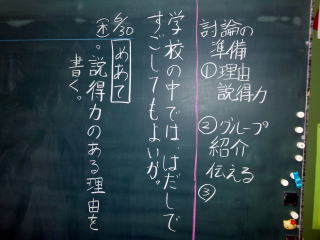 討論の
準備
①理由
説得力
②グループ
紹介
伝える
③
学校の中では、はだしで
すごしてもよいか。
6/30
㊍
めあて
。説得力のある理由を
書く。